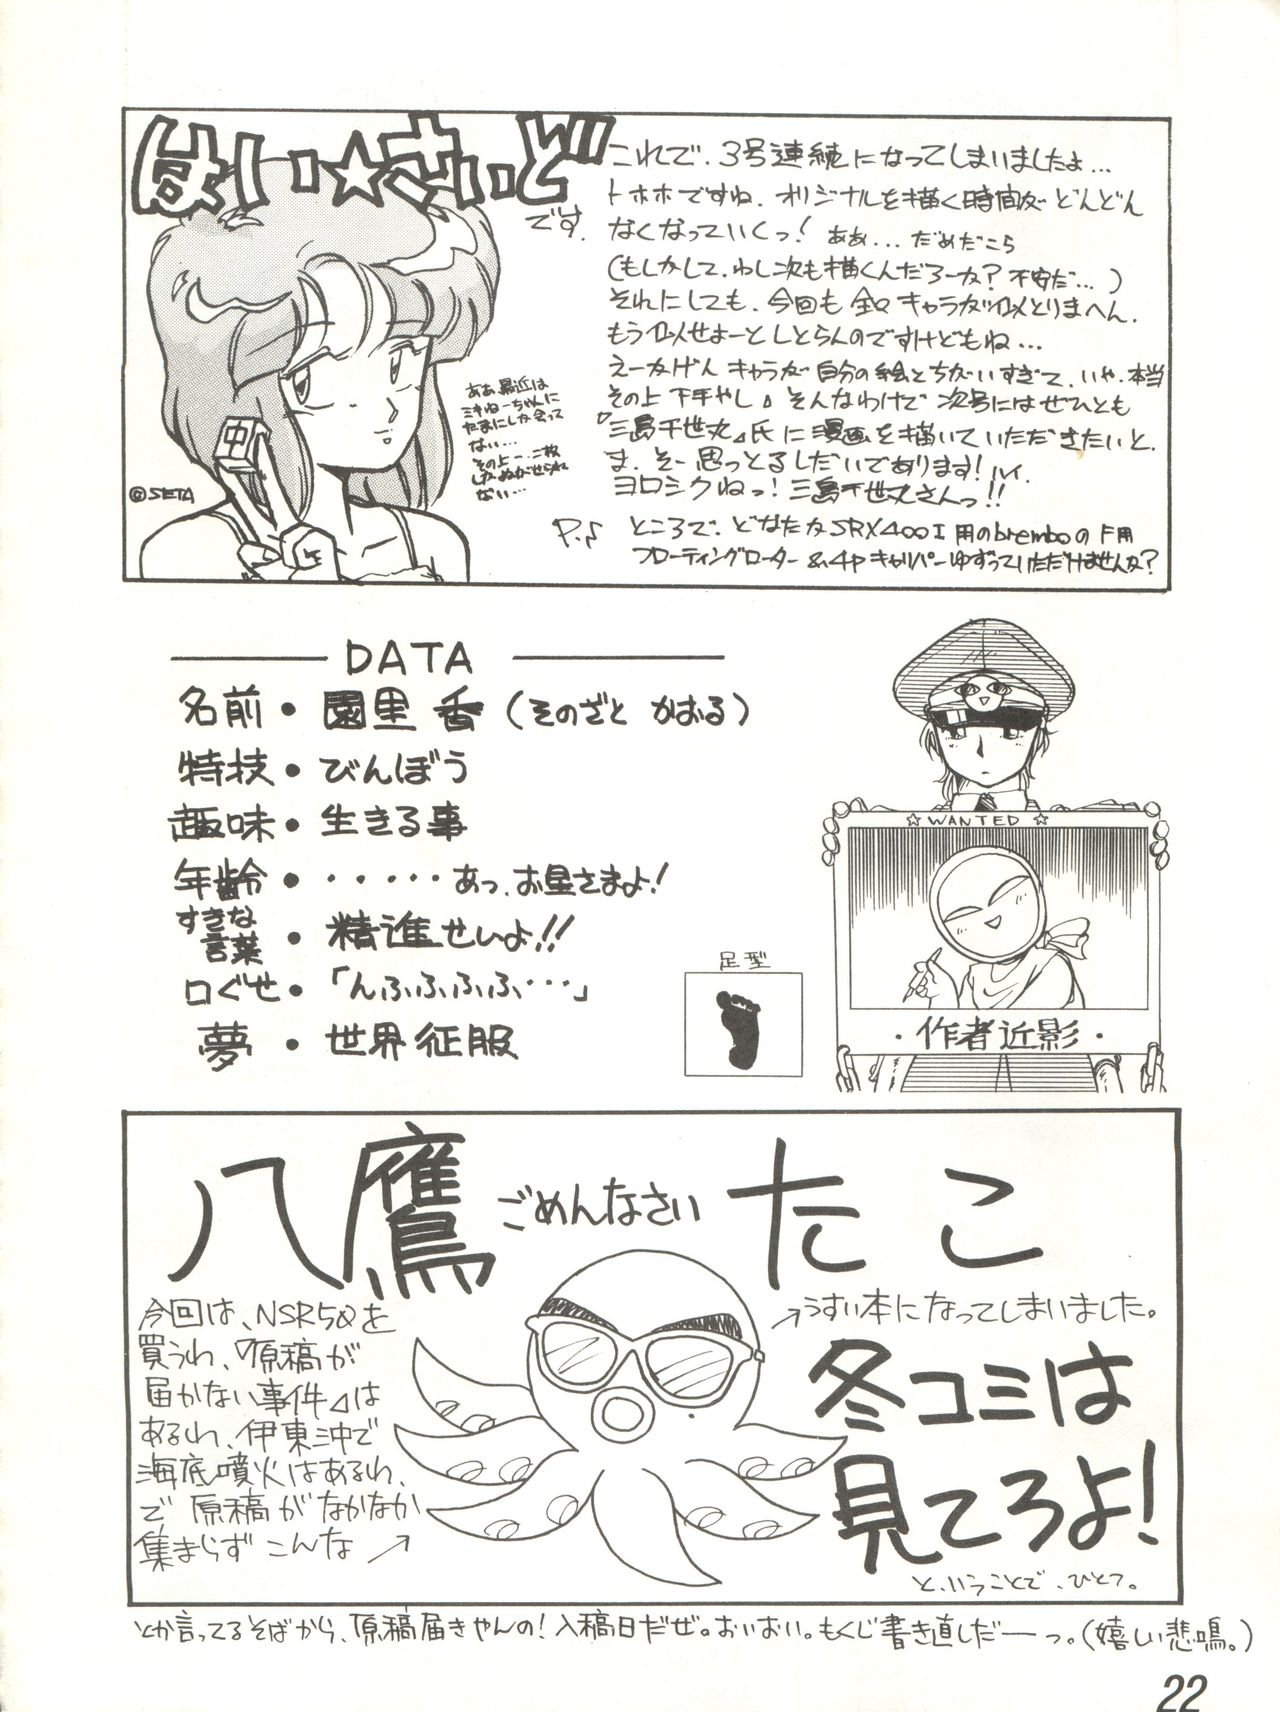 はい☆さいど
です.
これで、3号連続になってしまいましたよ…
トホホですね、オリジナルを描く時間がどんどん
なくなっていくっ! ああ…だめだこら
(もしかして、わし次も描くんだろーか? 不安だ…)
それにしても、今回も全々キャラが似とりまへん.
もう似せよーとしとらんのですけどもね…
えーかげんキャラが自分の絵とちがいすぎて、いや、本当
その上下手やし。そんなわけで次号にはぜひとも
『三島千世丸』氏に漫画を描いていただきたいと、
ま、そー思っとるしだいであります!
ヨロシクねっ! 三島千世丸さんっ!!
P.♪ ところで、どなたかSRX400I用のbremboのF用
フローティングローター&4Pキャリパーゆずっていただけませんか?
ああ、最近は
ミキねーちゃんに
たまにしか会って
ない…
その上一、二枚
しかぬがせられ
ない…
中
©SETA
DATA
名前・園里 香(そのざと かおる)
特技・びんぼう
趣味・生きる事
年齢・・・・・・あっ、お星さまよ!
すきな言葉・精進せいよ!!
口ぐせ・「んふふふふ…」
夢・世界征服
足型
☆WANTED☆
・作者近影・
八鷹 ごめんなさい たこ
今回は、NSR50を
買うわ、『原稿が
届かない事件』は
あるわ、伊東沖で
海底噴火はあるわ、
で原稿がなかなか
集まらずこんな↗
↗うすい本になってしまいました。
冬コミは
見てろよ!
と、いうことで、ひとつ。
とか言ってるそばから、原稿届きやんの!入稿日だぜ。おいおい。もくじ書き直しだーっ。(嬉しい悲鳴。)
22